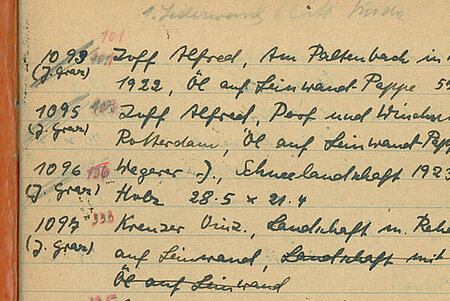 101
1093 Zoff Alfred, Am Paltenbach in
(J. Graz) 1922, Öl auf Leinwand-Pappe 5
1095 Zoff Alfred, Dorf und
(J. Graz) Rotterdam, Öl auf Leinwand-Papp
1096 156 Wegerer J., Schneelandschaft 1923
(J. Graz) Holz 28.5 x 21.4
1097 333 Kreuzer Vinz., Landschaft m. Rehe
(J. Graz) auf Leinwand, Landschaft mit
Öl auf Leinwand